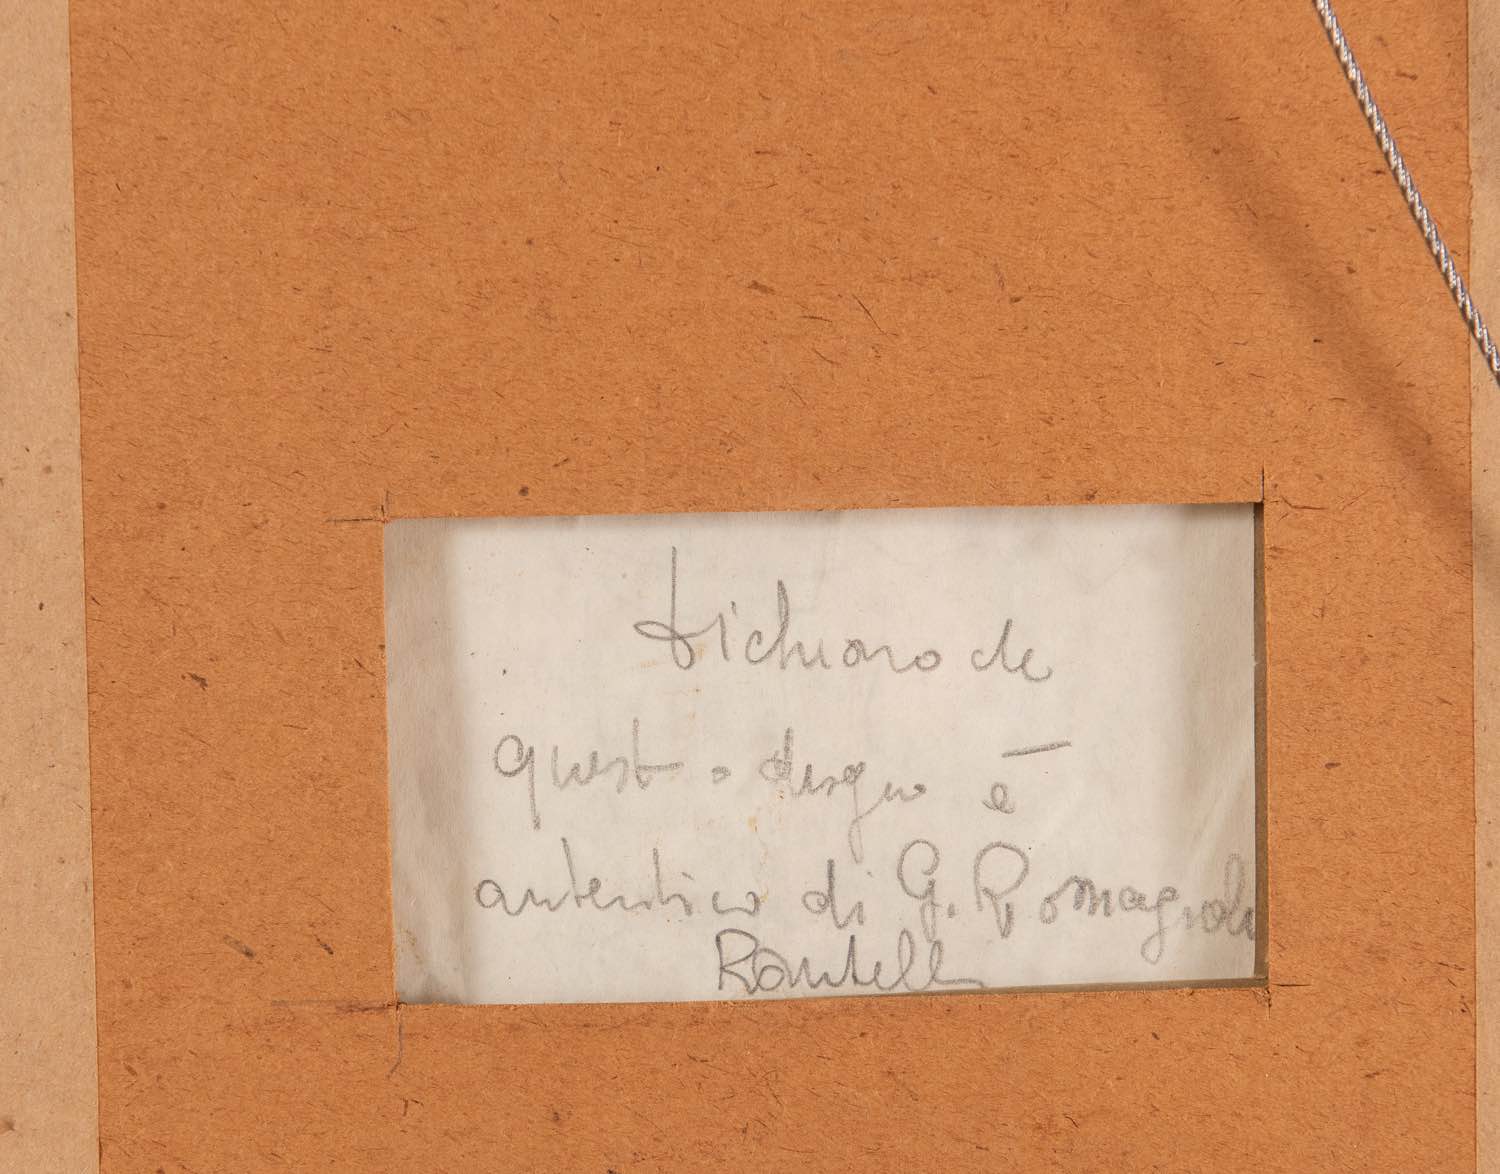 dichiaro che
questo disegno è
autentico di G. Romagnoli